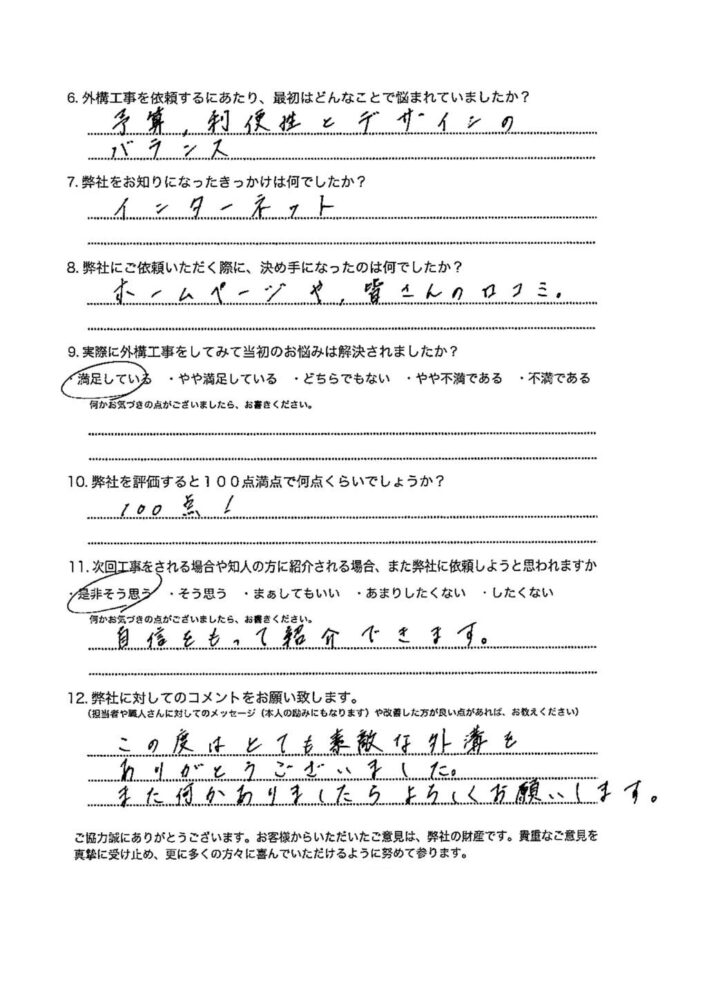 6. 外構工事を依頼するにあたり、最初はどんなことで悩まれていましたか？
予算，利便性とデザインの
バランス
7. 弊社をお知りになったきっかけは何でしたか？
インターネット
8. 弊社にご依頼いただく際に、決め手になったのは何でしたか？
ホームページや，皆さんの口コミ。
9. 実際に外構工事をしてみて当初のお悩みは解決されましたか？
・満足している ・やや満足している ・どちらでもない ・やや不満である ・不満である
何かお気づきの点がございましたら、お書きください。
10. 弊社を評価すると１００点満点で何点くらいでしょうか？
100点！
11. 次回工事をされる場合や知人の方に紹介される場合、また弊社に依頼しようと思われますか
・是非そう思う ・そう思う ・まぁしてもいい ・あまりしたくない ・したくない
何かお気づきの点がございましたら、お書きください。
自信をもって紹介できます。
12. 弊社に対してのコメントをお願い致します。
（担当者や職人さんに対してのメッセージ（本人の励みにもなります）や改善した方が良い点があれば、お教えください）
この度はとても素敵な外溝を
ありがとうございました。
また何かありましたらよろしくお願いします。
ご協力誠にありがとうございます。お客様からいただいたご意見は、弊社の財産です。貴重なご意見を
真摯に受け止め、更に多くの方々に喜んでいただけるように努めて参ります。